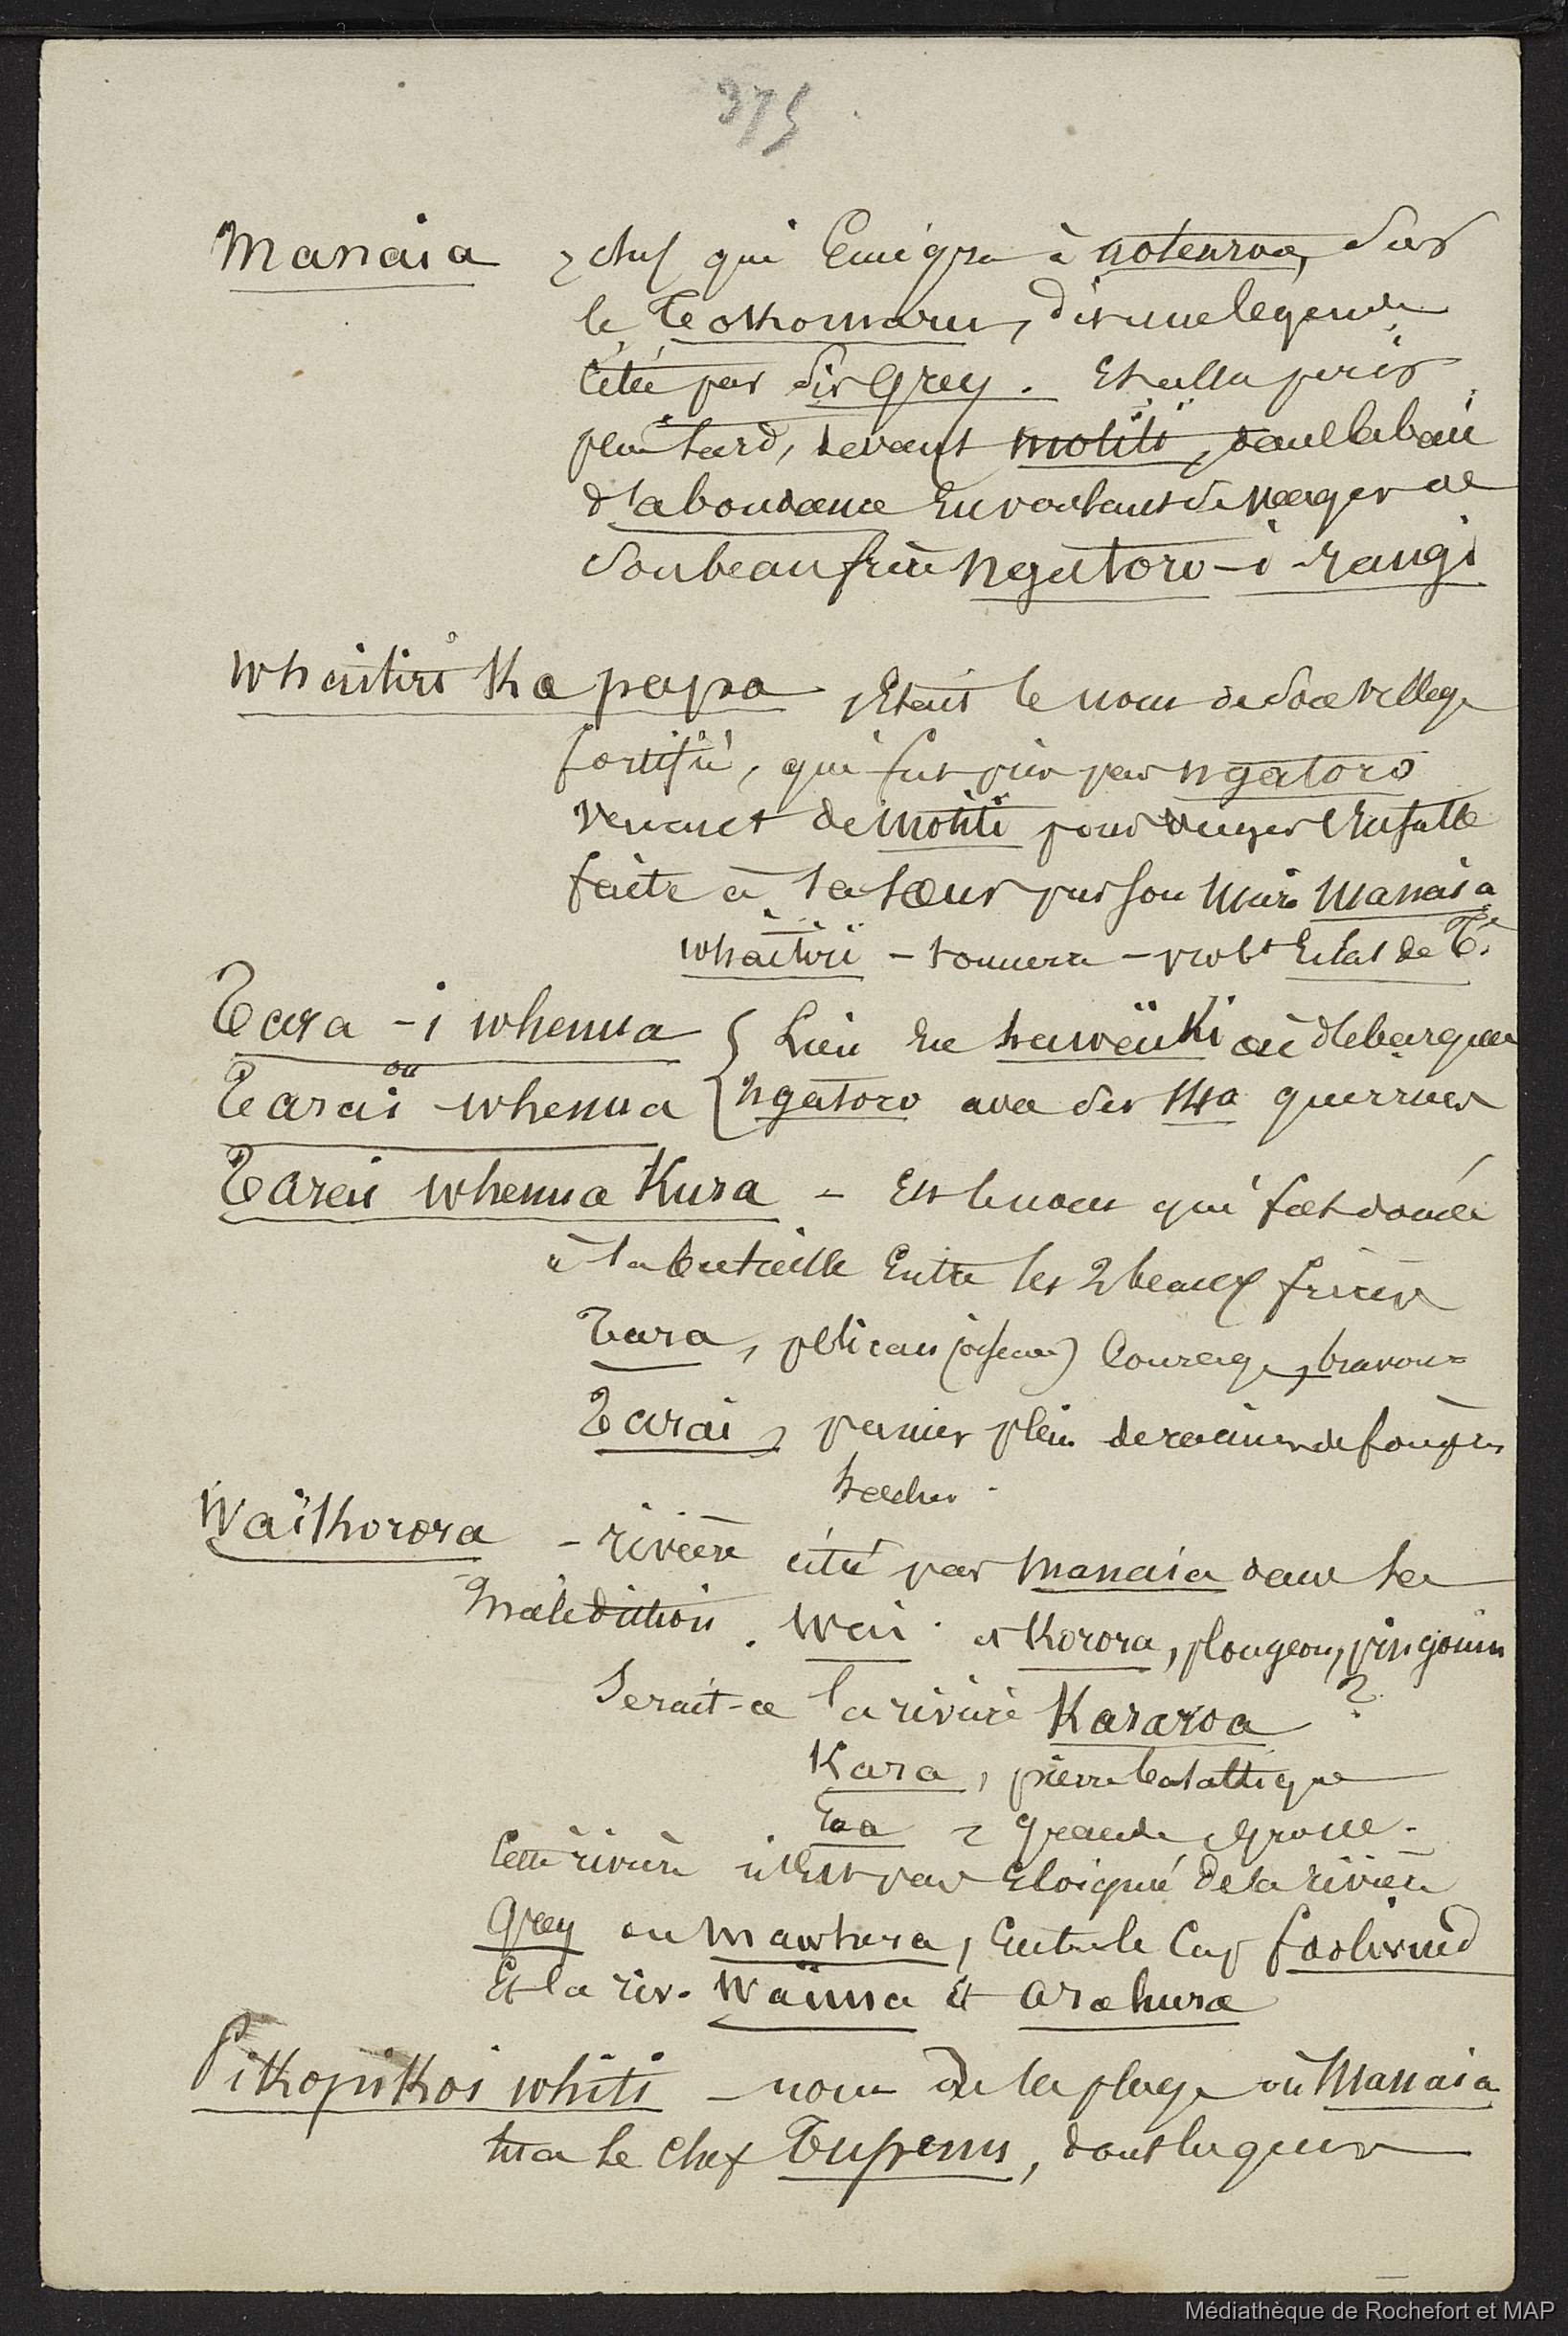 375
Manaia, chef qui émigra à Aotearoa, sur
le Tokomaru, dit une légende
citée par Sir Grey. Et alla périr
plus tard, devant Motiti, dans la baie
d'abondance en voulant se venger de
son beau frère Ngatoro-i-rangi
Whaitiri Ka papa, était le nom de son village
fortifié, qui fut pris par Ngatoro
venant de Motiti pour venger l'insulte
faite à sa sœur par son mari Manaia
whaitiri - tonnerre - probt Eclat de T.
Tara-i whenua { Lieu en hawaiki où débarqua
ou
Tarai-whenua { Ngatoro avec ses 140 guerriers
Tarai whenua Kura - Est le nom qui fut donné
à la bataille entre les 2 beaux frères
Tara, pélican (oiseau) courage, bravoure
Tarai, panier plein de racines de fougères
sèches.
Waïkorora - rivière cité par Manaia dans sa
malédiction. Wai et Korora, plongeon, pingouin
Serait-ce la rivière Kararoa ?
Kara, pierre basaltique
roa, grande, grosse.
Cette rivière n'est pas éloigné de la rivière
Grey ou Mawhera, entre le Cap foolwind
Et la riv. Waïmea et Arahura
Pikopikoi whiti - nom de la plage où Manaia
tua le chef Tupenu, dont les guer
Médiathèque de Rochefort et MAP